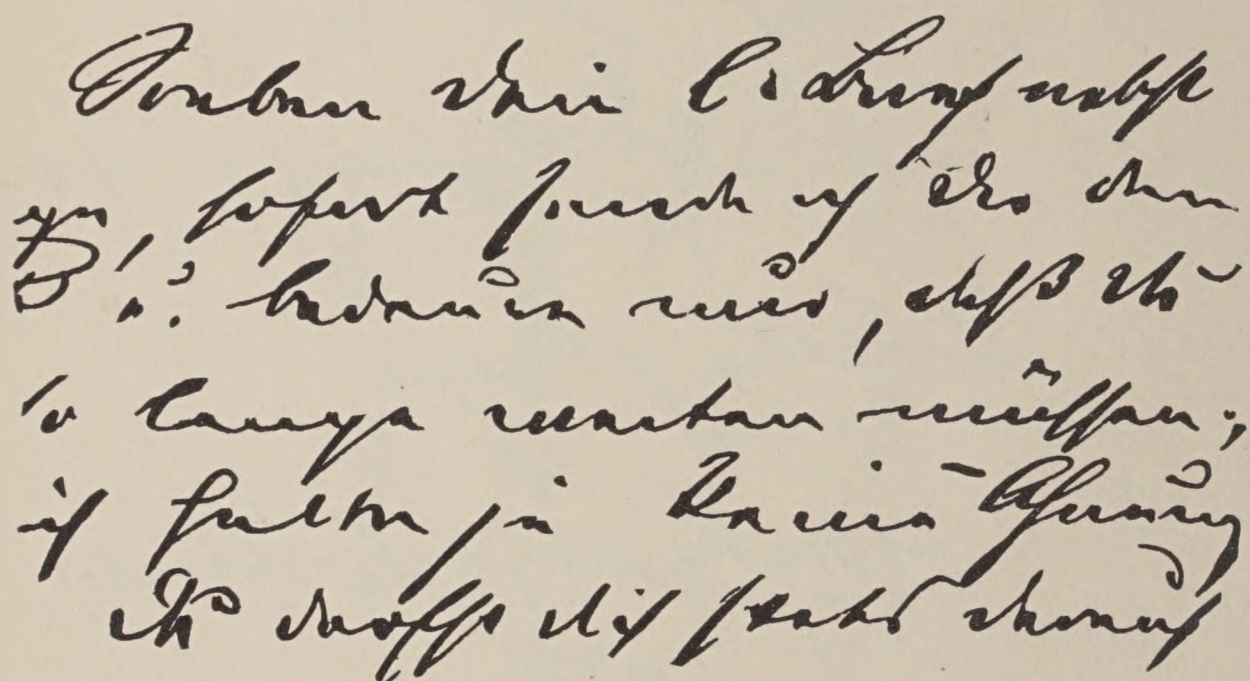 Soeben Dein l. Brief nebst
sofort sende ich Dir den
u. bedaure nur, daß Du
so lange warten müssen;
ich hatte ja keine Ahnung
Du darfst dich stets darauf